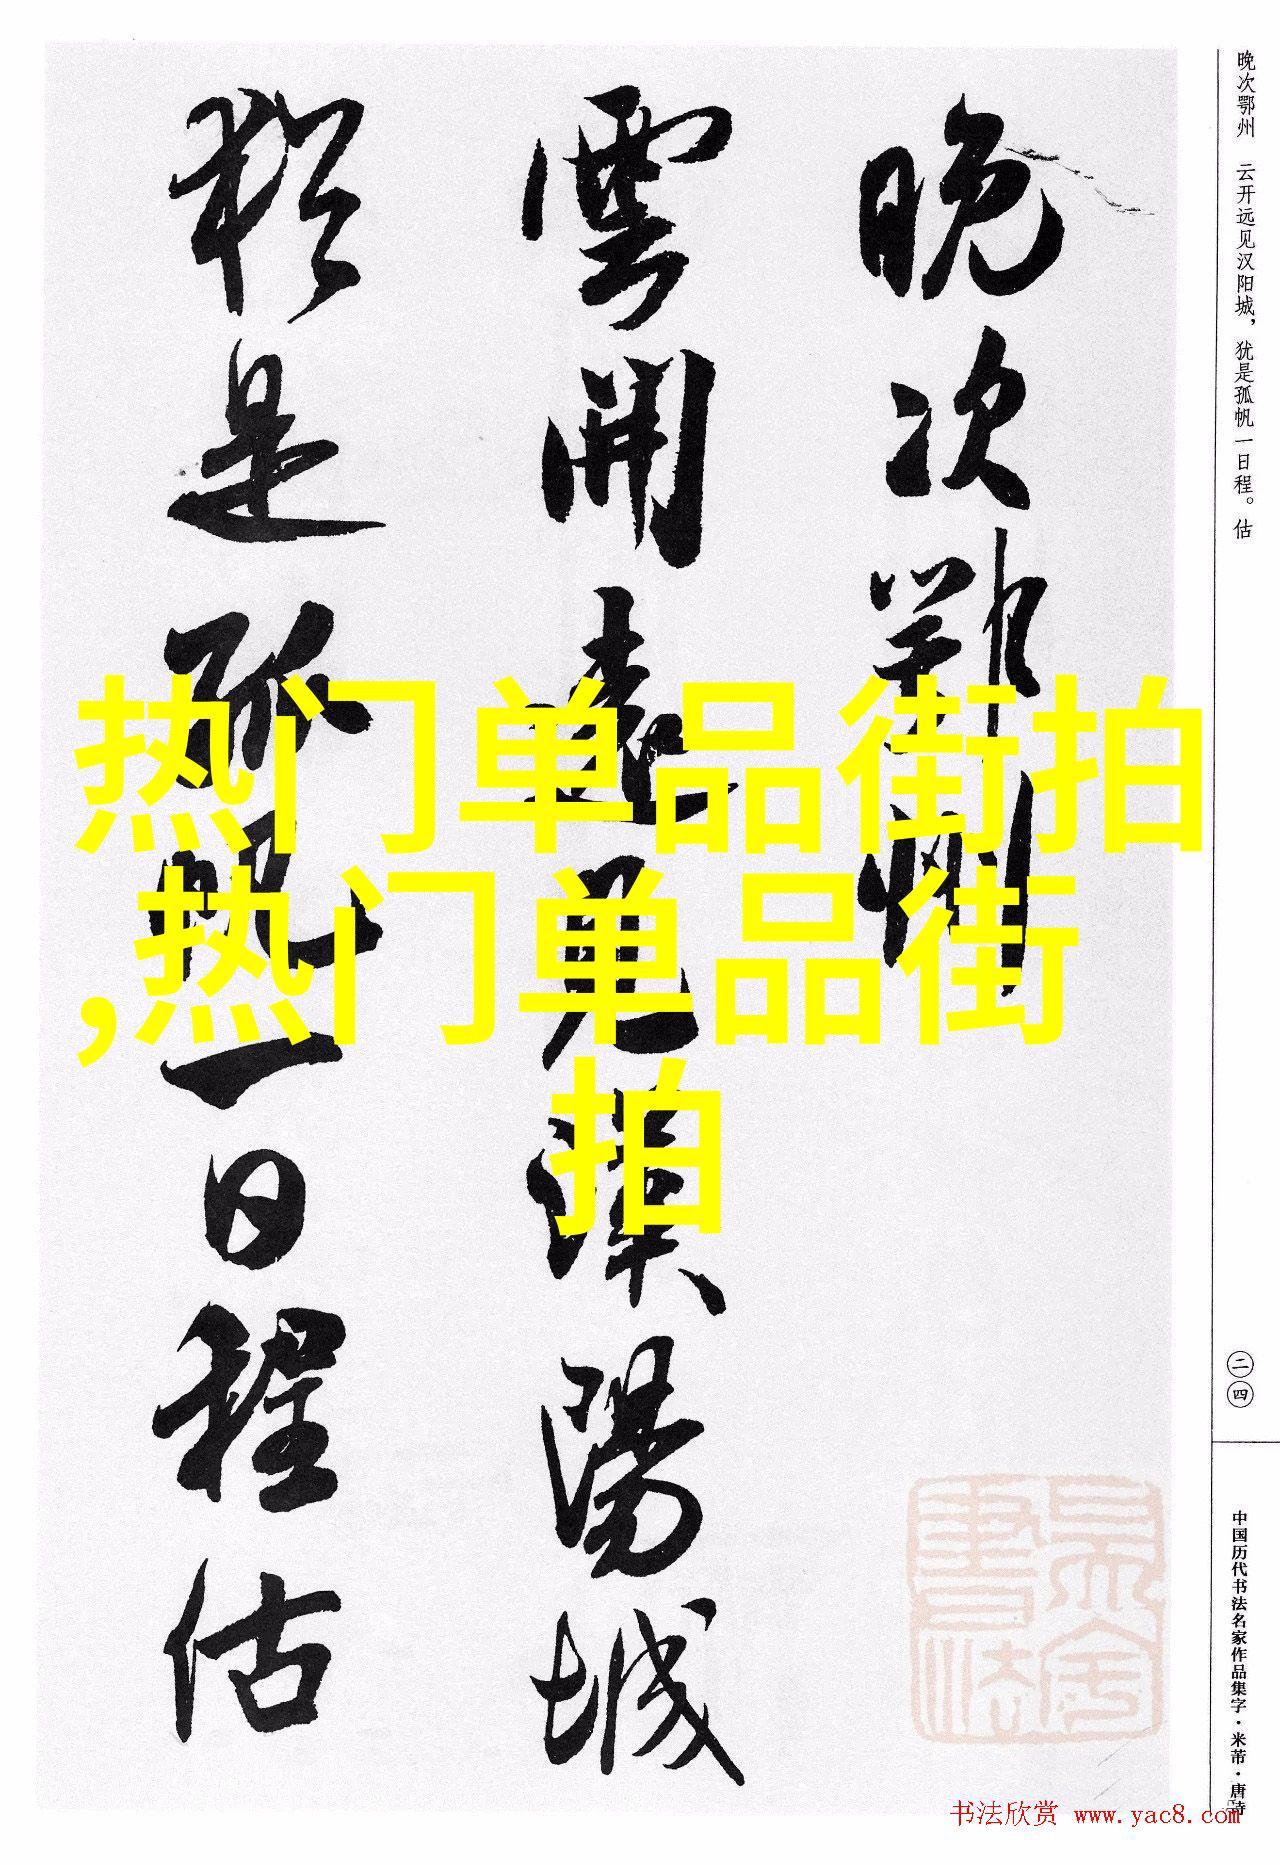 晚次鄂州
雲開遠見漢陽城
猶是孤帆一日程估
热门单品街拍
,热门单品街
拍
晚次鄂州 云开远见汉阳城，犹是孤帆一日程。估
二四
中国历代书法名家作品集字·米芾·唐诗
书法欣赏 www.yac8.com